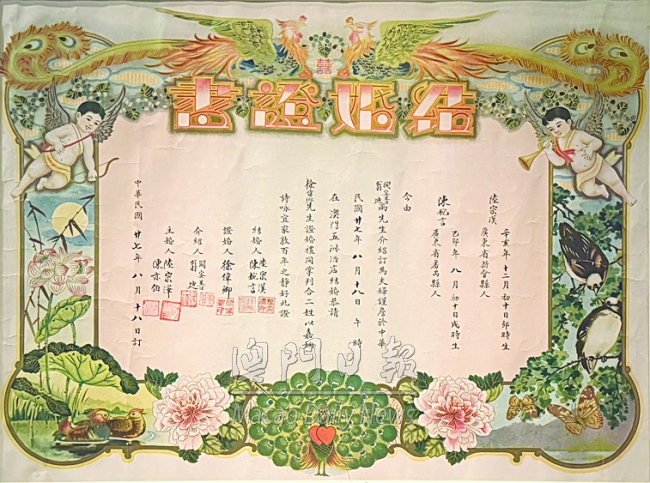 結婚證書
囍
陸宗漢 辛亥年十二月初十日卯時生
廣東省新會縣人
陳婉言 乙卯年八月初十日戌時生
廣東省番禺縣人
今由
先生介紹訂為夫婦謹詹於中華
民國廿七年八月十八日 午 時
在澳門五洲酒店結婚恭請
徐偉卿先生證婚禮同掌判合二姓以嘉
詩咏宜家敦百年之靜好此證
結婚人 陸宗漢
陳婉言
證婚人 徐偉卿
介紹人
主婚人 陸宗澤
陳亦伯
中華民國廿七年八月十八日訂
澳門日報
Macao Daily News